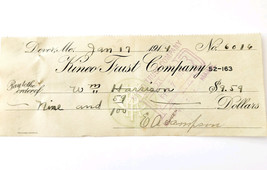 Dover, Mo. Jan 17 1914 No. 6016
Kinco Trust Company 52-163
Pay to the order of Wm Harrison $9.59
Nine and 59/100 Dollars
E A Sampson